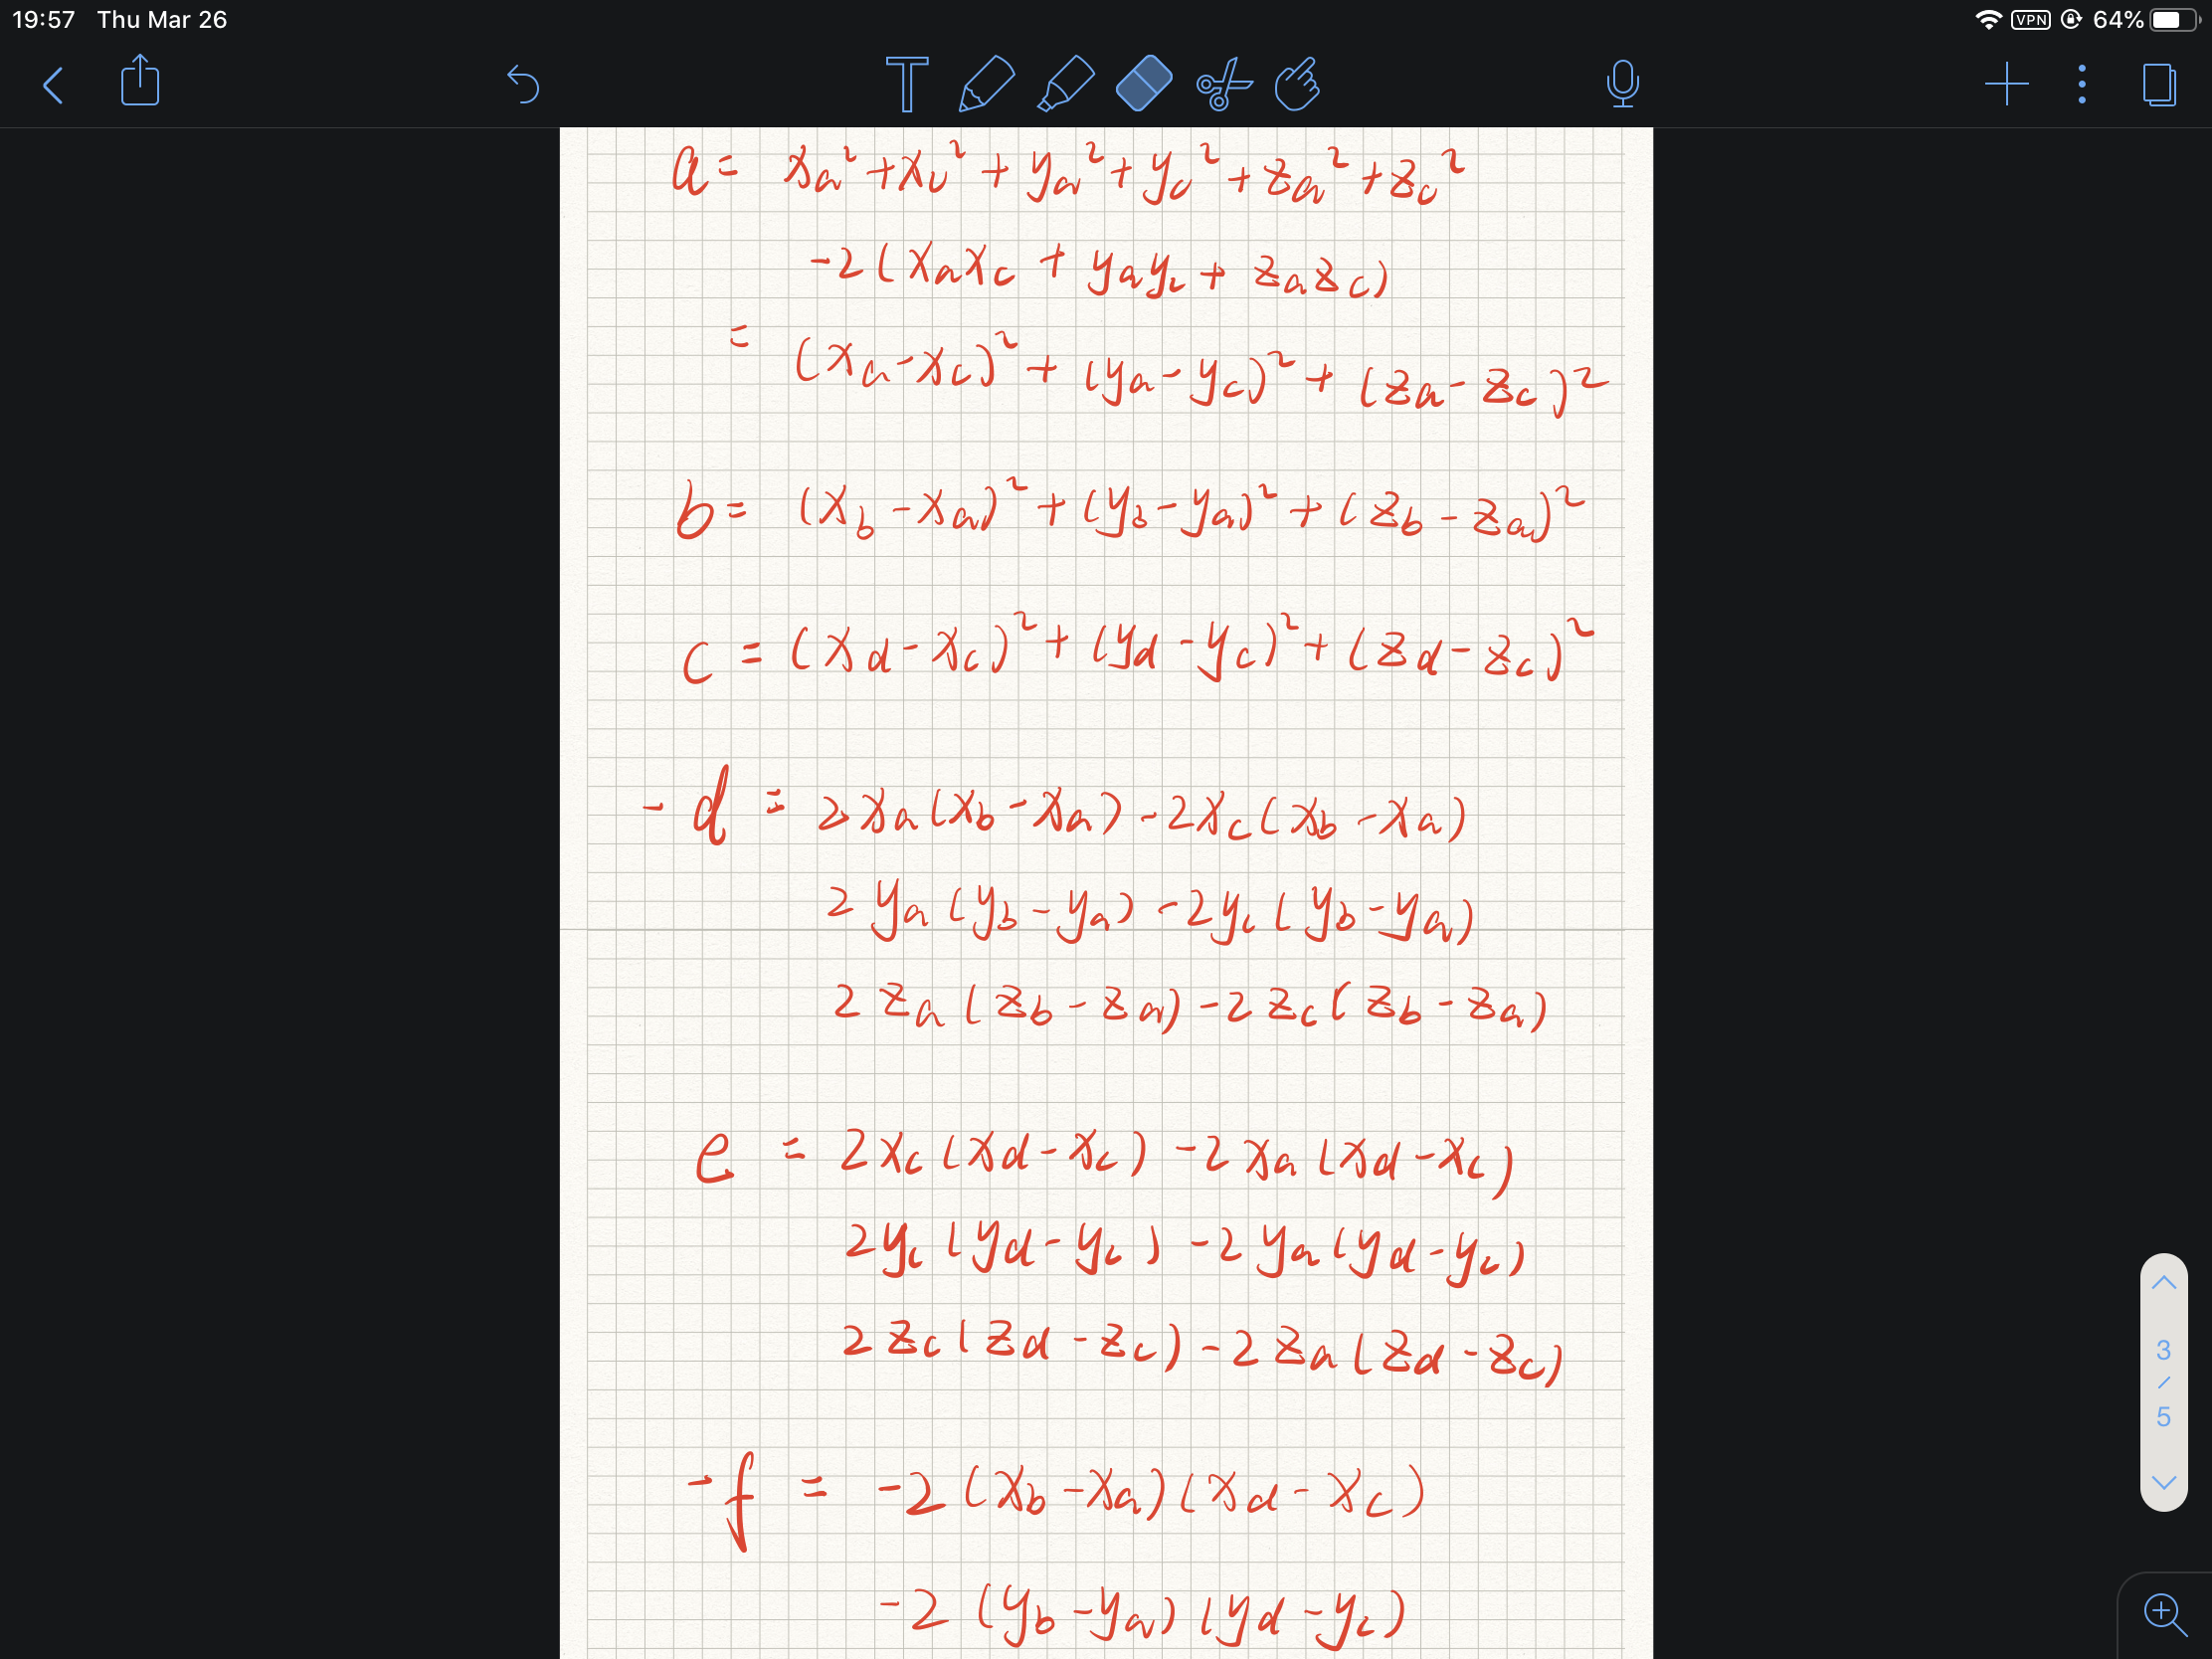 19:57 Thu Mar 26 VPN 64%
T
a = xₐ² + x_c² + yₐ² + y_c² + zₐ² + z_c²
-2(xₐx_c + yₐy_c + zₐz_c)
= (xₐ - x_c)² + (yₐ - y_c)² + (zₐ - z_c)²
b = (x_b - xₐ)² + (y_b - yₐ)² + (z_b - zₐ)²
c = (x_d - x_c)² + (y_d - y_c)² + (z_d - z_c)²
- d = 2xₐ(x_b - xₐ) - 2x_c(x_b - xₐ)
2yₐ(y_b - yₐ) - 2y_c(y_b - yₐ)
2zₐ(z_b - zₐ) - 2z_c(z_b - zₐ)
e = 2x_c(x_d - x_c) - 2xₐ(x_d - x_c)
2y_c(y_d - y_c) - 2yₐ(y_d - y_c)
2z_c(z_d - z_c) - 2zₐ(z_d - z_c)
- f = -2(x_b - xₐ)(x_d - x_c)
-2(y_b - yₐ)(y_d - y_c)
3
/
5